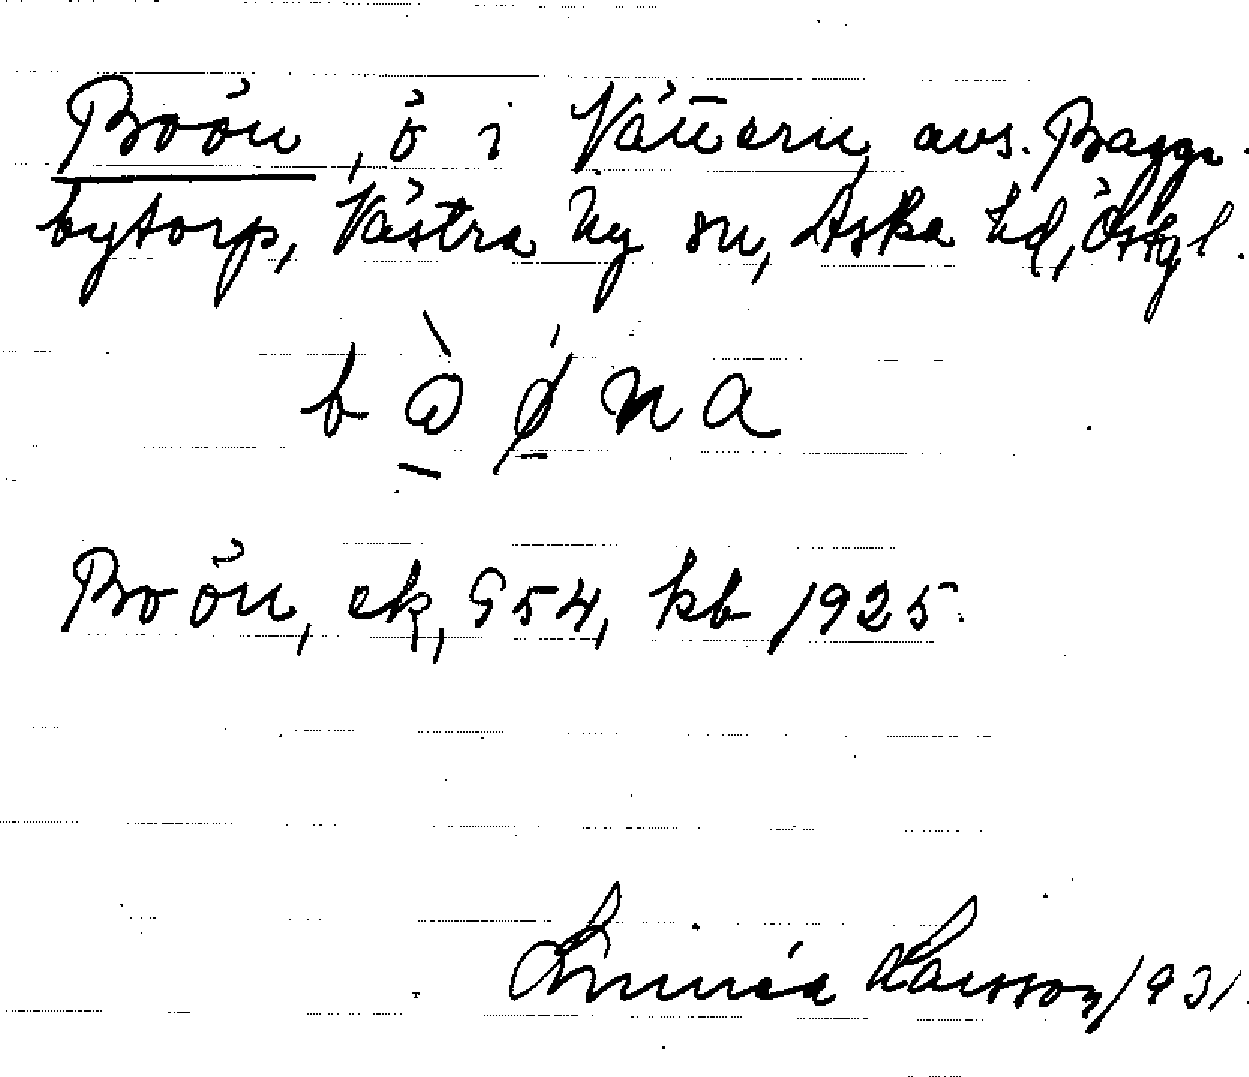 Boön, ö i Vättern avs. Bagge-
bytorp, Västra Ny sn, Aska hd, Östgl.
bò̱ǿ̱na
Boön, ek, G54, kb 1925.
Linnéa Larsson 1931.